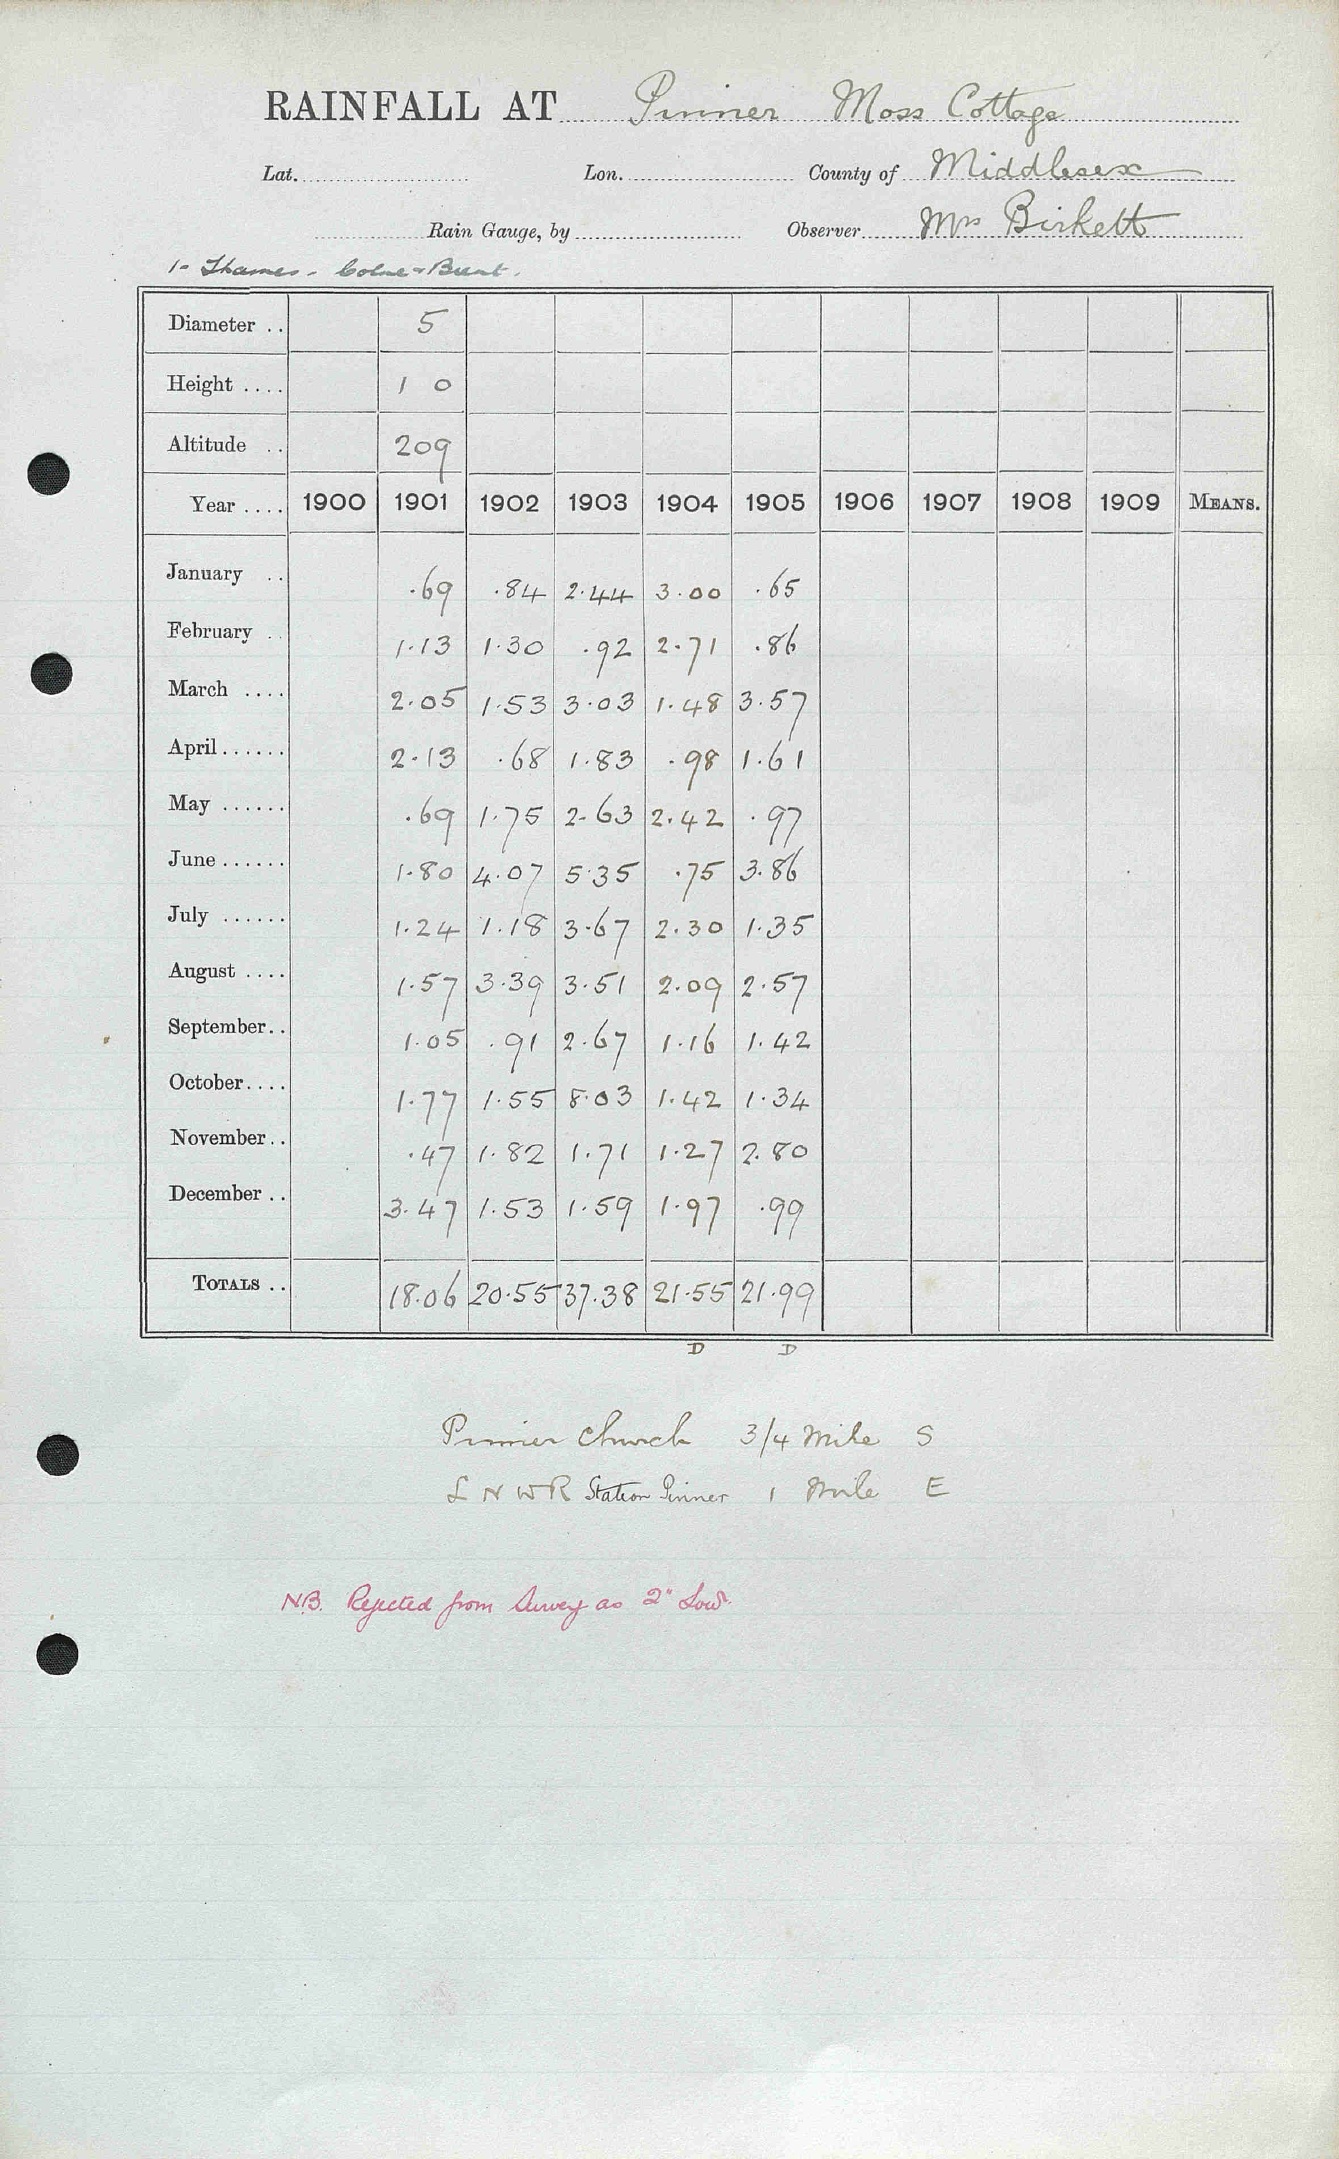 RAINFALL AT Pinner Moss Cottage
Lat. Lon. County of Middlesex
Rain Gauge, by Observer Mrs Birkett
1- Thames - Colne & Brent.
Diameter .. 5
Height .... 1 0
Altitude .. 209
Year .... 1900 1901 1902 1903 1904 1905 1906 1907 1908 1909 MEANS.
January .. .69 .84 2.44 3.00 .65
February .. 1.13 1.30 .92 2.71 .86
March .... 2.05 1.53 3.03 1.48 3.57
April...... 2.13 .68 1.83 .98 1.61
May ...... .69 1.75 2.63 2.42 .97
June ...... 1.80 4.07 5.35 .75 3.86
July ...... 1.24 1.18 3.67 2.30 1.35
August .... 1.57 3.39 3.51 2.09 2.57
September.. 1.05 .91 2.67 1.16 1.42
October.... 1.77 1.55 8.03 1.42 1.34
November.. .47 1.82 1.71 1.27 2.80
December .. 3.47 1.53 1.59 1.97 .99
TOTALS .. 18.06 20.55 37.38 21.55 21.99
D D
Pinner Church 3/4 Mile S
L N W R Station Pinner 1 Mile E
N.B. Rejected from Survey as 2" Low.